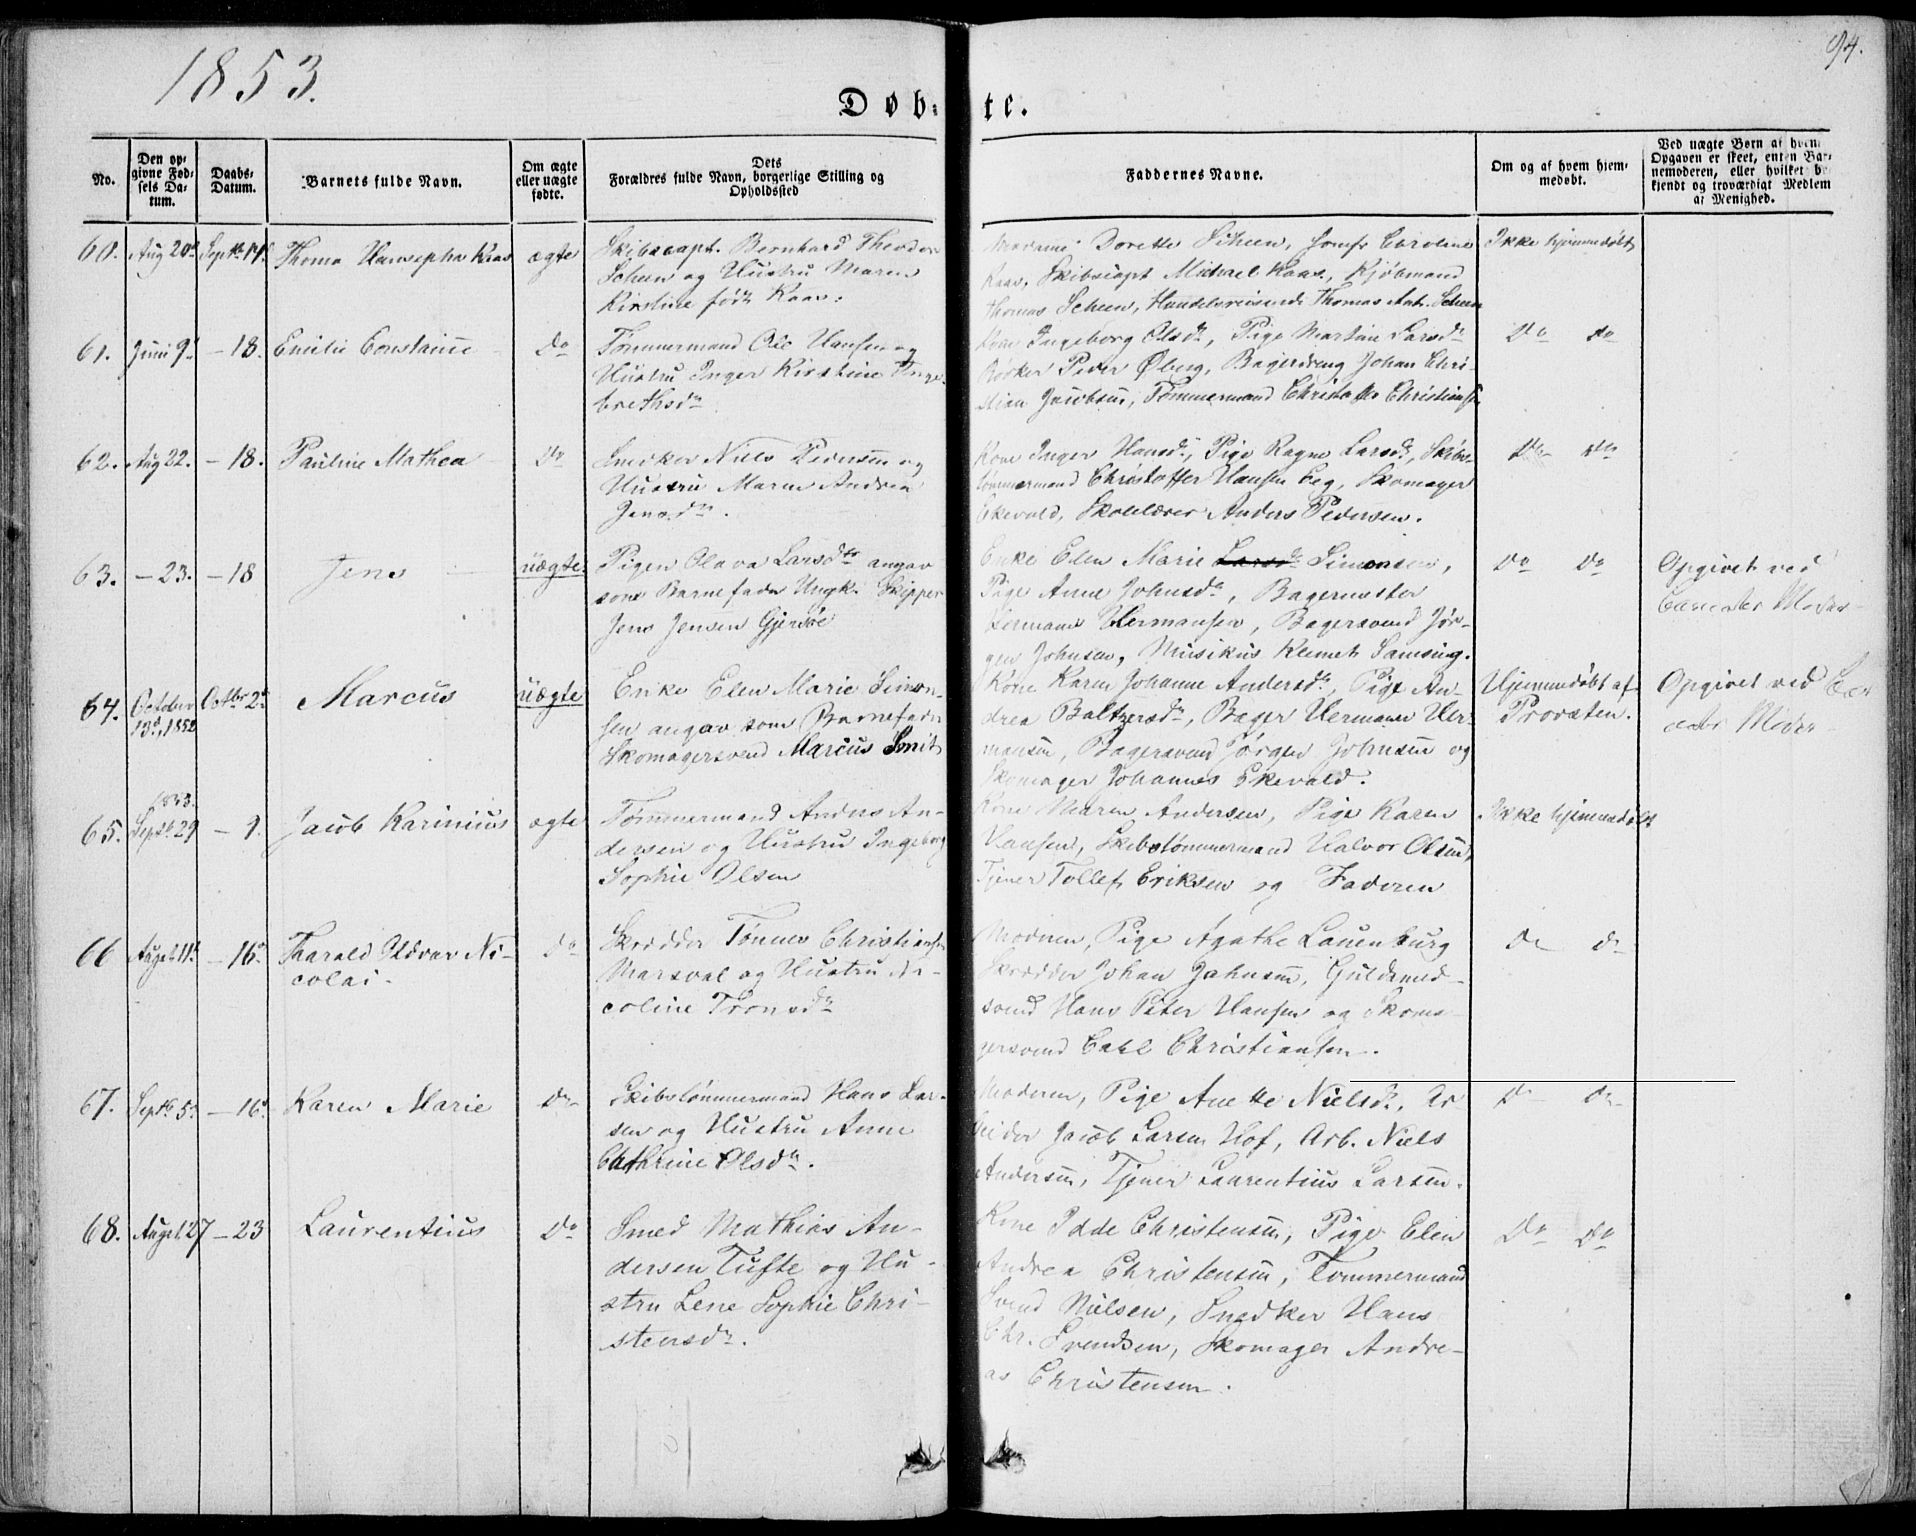 1853.
94.
Døb-te.
No.
Den opgivne Fødsels Datum.
Daabs-Datum.
Barnets fulde Navn.
Om ægte eller uægte fødte.
Dets Forældres fulde Navn, borgerlige Stilling og Opholdssted
Faddernes Navne.
Om og af hvem hjemmedøbt.
Ved uægte Børn af hvem Opgaven er skeet, enten Barnemoderen, eller hvilket bekjendt og troværdigt Medlem af Menighed.
60. Aug 20d Septb. Thoma Hansepha Kras ægte
Skibscapt. Bernhard Theodor
Scheen og Hustru Maren
Kirstine født Kaas.
Madame Dorette Scheen, Jomfr Caroline
Kaas, Skibscapt Michael Kaas, Kjøbmand
Thomas Scheen, Handelsreisende Thomas Ant. Scheen
Ikke hjemmedøbt
61. Juni 9d - 18. Emilie Constance do
Tømmermand Ole Hansen og
Hustru Inger Kirstine Enge-
brethsdr
Kone Ingeborg Olsdr, Pige Martine Larsdr
Bødker Peder Øberg, Bagerdreng Johan Chri-
stian Jacobsen, Tømmermand Christoffer Christiansen
Do do
62. Aug 22. - 18. Pauline Mathea do
Snedker Niels Pedersen og
Hustru Maren Andrea
Jensdr.
Kone Inger Hansdr, Pige Ragne Larsdr, Skibs-
tømmermand Christoffer Hansen Eeg, Skomager
Ekevald, Skolelærer Anders Pedersen.
Do do
63. - 23. - 18 Jens uægte
Pigen Olava Larsdtr angav
som Barnefader Ungk. Skipper
Jens Jensen Gjersøe
Enke Elen Marie Larsdr Simonsen,
Pige Anne Johnsdr, Bagermester
Hermann Hermansen, Bagersvend Jør-
gen Johnsen, Musikus Klemet Samsing.
Do do
Opgivet ved
Barnets Moder
64. October 13d, 1852 Octbr 2d Marcus uægte
Enke Elen Marie Simon-
sen angav som Barnefader
Skomagersvend Marcus Smit
Kone Karen Johanne Andersdr, Pige An-
drea Baltzersdr, Bager Hermann Her-
mansen, Bagersvend Jørgen Johnsen og
Skomager Johannes Ekevald.
Hjemmedøbt af
Provsten.
Opgivet ved Bar-
nets Moder
65. 1853. Septb. 29 - 9. Jacob Karinius ægte
Tømmermand Anders An-
dersen og Hustru Ingeborg
Sophie Olsen
Kone Maren Andersen, Pige Karen
Hansen, Skibstømmermand Halvor Olsen,
Tjener Tollef Eriksen og Faderen
Ikke hjemmedøbt
66 Augst 11d - 16d Tharald Ni-
colai. do
Skrædder Tønnes Christiansen
Marsval og Hustru Ni-
coline Tronsdr
Moderen, Pige Agathe Lauenburg
Skrædder Johan Jahnsen, Guldsmed-
svend Hans Peter Hansen og Skoma-
gersvend Carl Christiansen.
do do
67. Septb 5d - 16d Karen Marie do
Skibstømmermand Hans Lar-
sen og Hustru Anne
Cathrine Olsdr.
Moderen, Pige Anette Nielsdr, Ar-
beider Jacob Larsen Hof, Arb. Niels
Andersen, Tjener Laurentius Larsen.
do do
68. Augst 27 - 23 Laurentius do
Smed Mathias An-
dersen Tufte og Hu-
stru Lene Sophie Chri-
stensdr.
Kone Idde Christensen, Pige Elen
Andrea Christensen, Tømmermand
Svend Nielsen, Snedker Hans
Chr. Svendsen, Skomager Andre-
as Christensen.
Do do